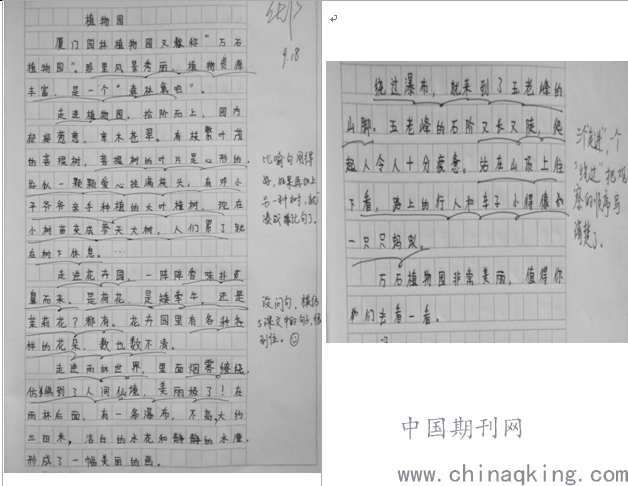 植物园
厦门园林植物园又称"万石
植物园"。那里风景秀丽，植物资源
丰富，是一个"森林氧吧"。
走进植物园，拾阶而上，园内
郁郁葱葱，草木苍翠。有枝繁叶茂
的菩提树，菩提树的叶片是心形的
每似一颗颗爱心挂满枝头，有邓小
平爷爷亲手种植的大叶樟树，现在
小树苗变成擎天大树，人们累了就
在树下休息。…
走进花卉园，一阵阵香味扑进
鼻而来，是荷花，是矮牵牛，还是
茉莉花？都有。花卉园里有各种各
样的花朵，数也数不清。
走进雨林世界，里面烟雾缭绕，
仿佛到了人间仙境，美丽极了！在
雨林后面，有一条瀑布，不高，大约
三四米，洁白的水花和静静的水潭，
形成了一幅美丽的画。
9.18
比喻句用得
好，如果再加上
另一种树，就
变成排比句了。
设问句，模仿
了课文中的句子，
绕过瀑布，就来到了五老峰的
山脚。五老峰的石阶又长又陡，爬
起人令人十分疲惫。站在山顶上往
下看，路上的行人和车子小得像如
一只只蚂蚁。
万石植物园非常美丽，值得你
们去看一看。
三个"走进"，一个
"绕过"把观
察的顺序写
清楚了。
中国期刊网
www.chinaqking.com